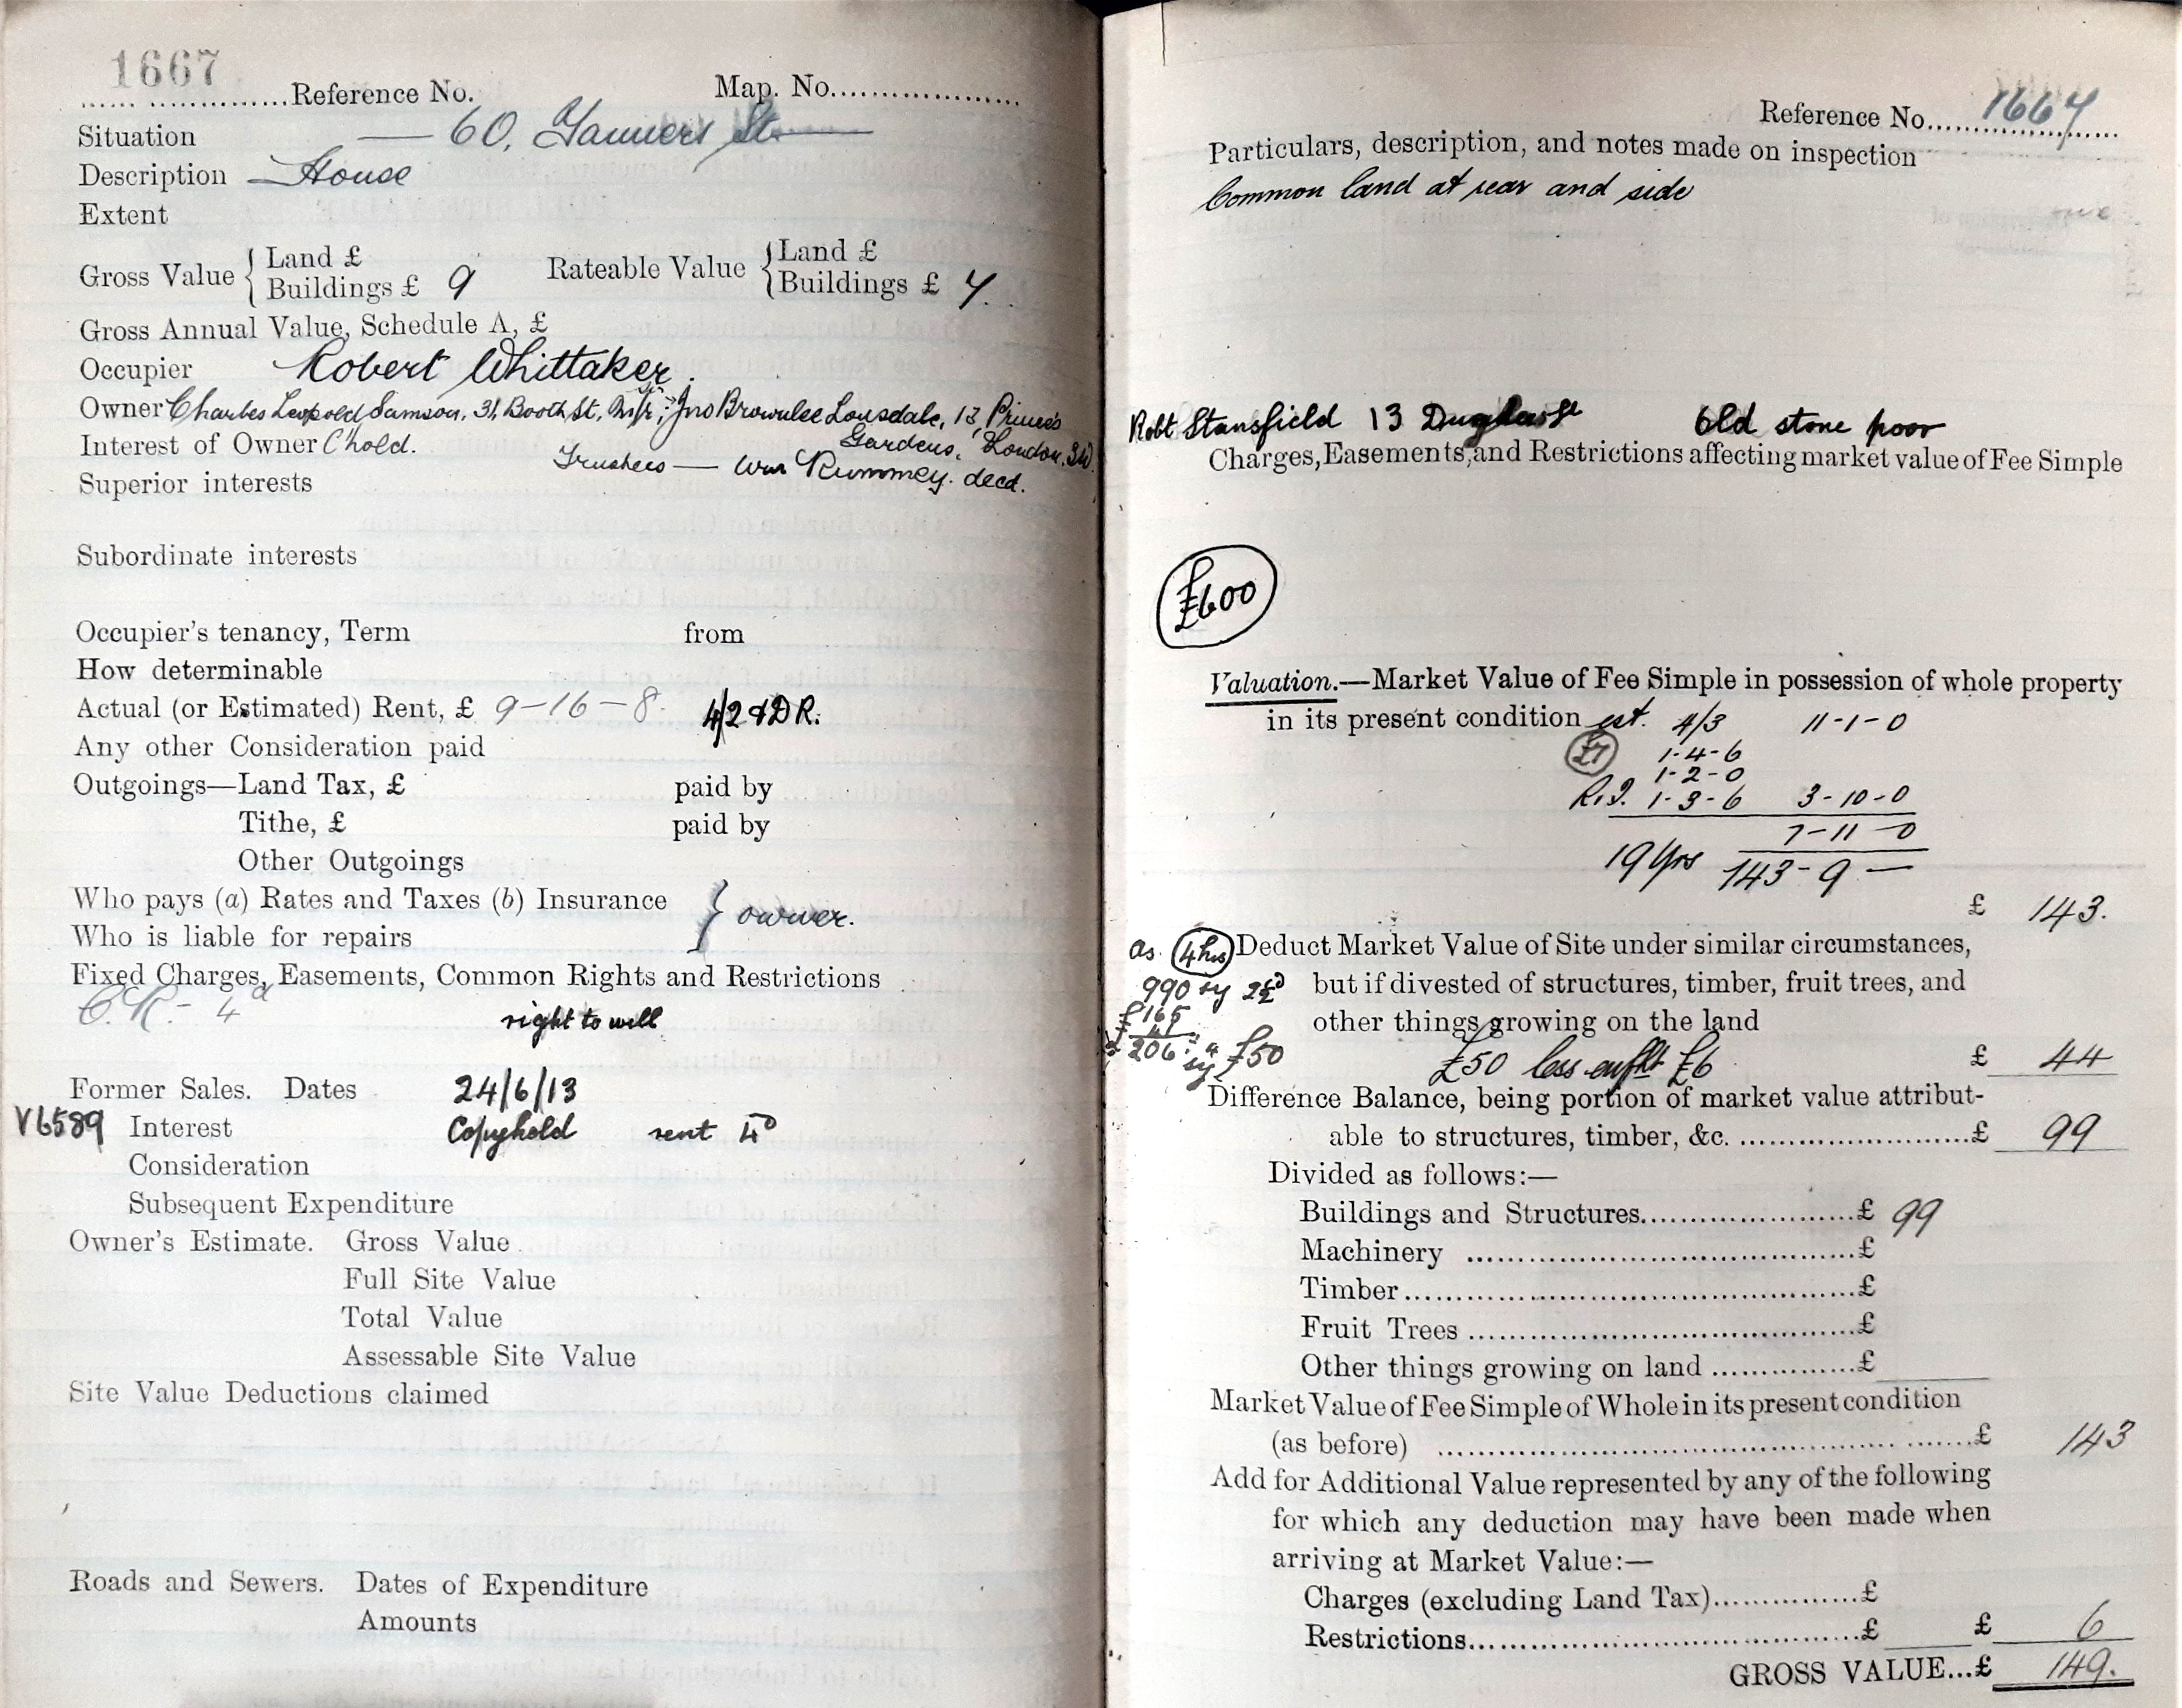 1667
Reference No. Map. No.
Situation — 60, Tanners St.
Description House
Extent
Gross Value { Land £ Rateable Value { Land £
Buildings £ 9 Buildings £ 7.
Gross Annual Value, Schedule A, £
Occupier Robert Whittaker.
Owner Charles Leopold Samson, 31, Booth St, M/r; Jno Brownlee Lonsdale, 13, Prince's
Gardens, London, S.W.
Interest of Owner C'hold.
Trustees — Wm Rummey. decd.
Superior interests
Subordinate interests
Occupier's tenancy, Term from
How determinable
Actual (or Estimated) Rent, £ 9-16-8. 4/2 & D R.
Any other Consideration paid
Outgoings—Land Tax, £ paid by
Tithe, £ paid by
Other Outgoings
Who pays (a) Rates and Taxes (b) Insurance } owner.
Who is liable for repairs
Fixed Charges, Easements, Common Rights and Restrictions
C.R.- 4d
right to well
Former Sales. Dates 24/6/13
V6589 Interest Copyhold rent 4D
Consideration
Subsequent Expenditure
Owner's Estimate. Gross Value
Full Site Value
Total Value
Assessable Site Value
Site Value Deductions claimed
Roads and Sewers. Dates of Expenditure
Amounts
Reference No. 1667
Particulars, description, and notes made on inspection
Common land at rear and side
Robt Stansfield 13 Old stone poor
Charges, Easements, and Restrictions affecting market value of Fee Simple
£600
Valuation.—Market Value of Fee Simple in possession of whole property
in its present condition est. 4/3 11-1-0
£7 1-4-6
1-2-0
R.I. 1-3-6 3-10-0
7-11-0
19 Yrs 143-9-
£ 143.
as 4 hrs Deduct Market Value of Site under similar circumstances,
990 sy 2½d but if divested of structures, timber, fruit trees, and
£165
other things growing on the land
206 sy £50
£50 less enfht £6 £ 44
Difference Balance, being portion of market value attribut-
able to structures, timber, &c. £ 99
Divided as follows:—
Buildings and Structures £ 99
Machinery £
Timber £
Fruit Trees £
Other things growing on land £
Market Value of Fee Simple of Whole in its present condition
(as before) £ 143
Add for Additional Value represented by any of the following
for which any deduction may have been made when
arriving at Market Value:—
Charges (excluding Land Tax) £
Restrictions £ £ 6
GROSS VALUE...£ 149.